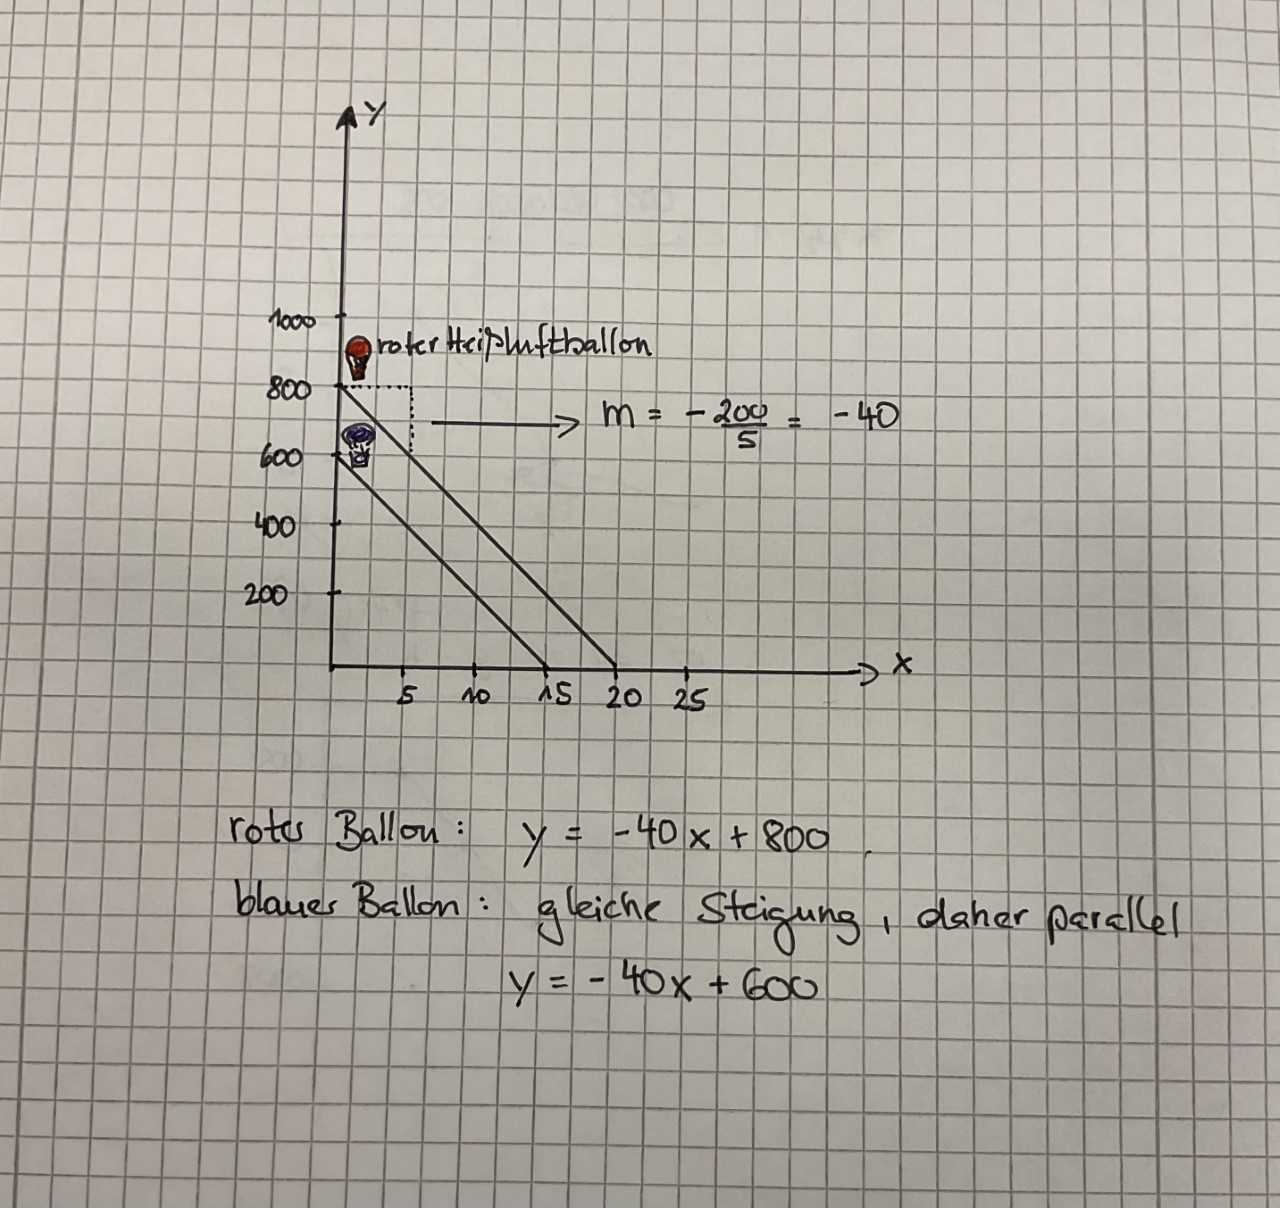 y
1000
roter Heißluftballon
800
m = -200/5 = -40
600
400
200
x
5 10 15 20 25
roter Ballon: y = -40x + 800
blauer Ballon: gleiche Steigung, daher parallel
y = -40x + 600